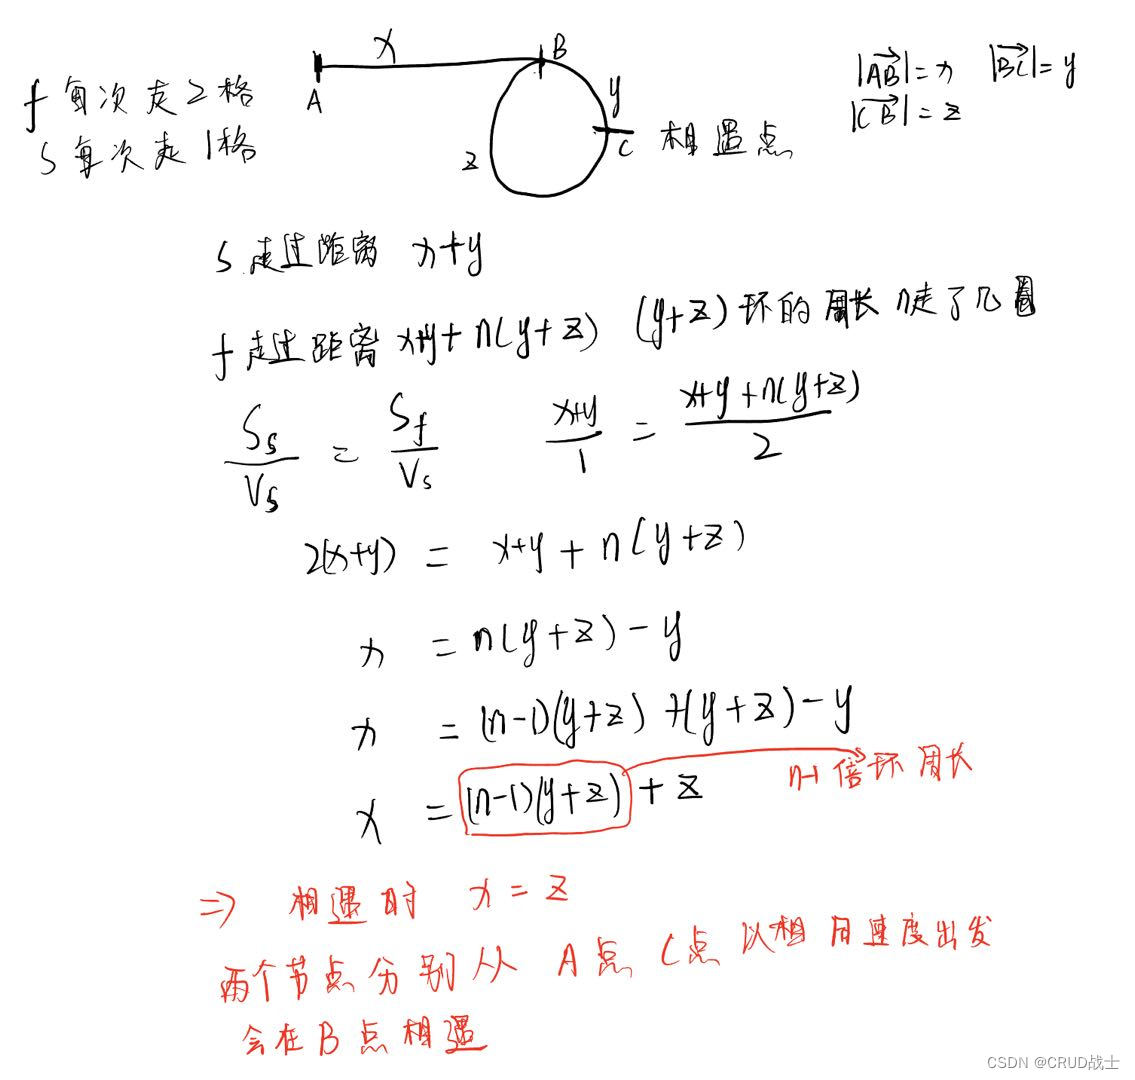 x
B
|AB|=x |BC|=y
f 每次走2格
A
y
|CB|=z
s 每次走1格
z
C 相遇点
s 走过距离 x+y
f 走过距离 x+y+n(y+z) (y+z)环的周长 n走了几圈
Ss/Vs = Sf/Vs (x+y)/1 = (x+y+n(y+z))/2
2(x+y) = x+y+n(y+z)
x = n(y+z)-y
x = (n-1)(y+z)+(y+z)-y
x = (n-1)(y+z)+z n-1倍环周长
⇒ 相遇时 x=z
两个节点分别从 A点 C点 以相同速度出发
会在B点相遇
CSDN @CRUD战士